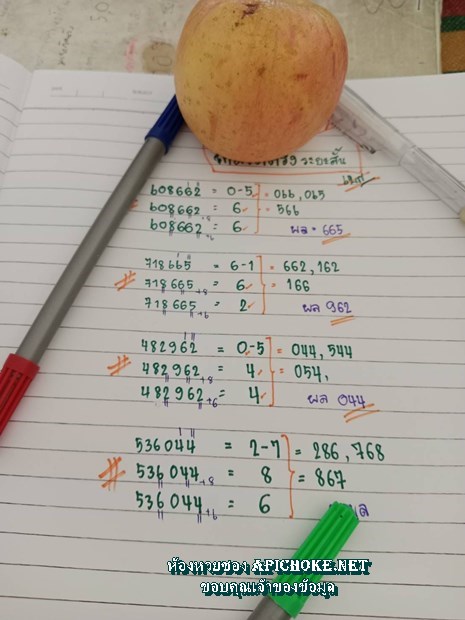 ระยะสั้น
608662 = 0-5 = 066, 065
608662 = 6 = 566
608662+6 = 6 ผล = 665
718665 = 6-1 = 662, 162
718665+8 = 6 = 166
718665+6 = 2 ผล 962
482962 = 0-5 = 044, 544
482962+8 = 4 = 054,
482962+6 = 4 ผล 044
536044 = 2-7 = 286, 768
536044+8 = 8 = 867
536044+6 = 6
ห้องหวยซอง APICHOKE.NET
ขอบคุณเจ้าของข้อมูล